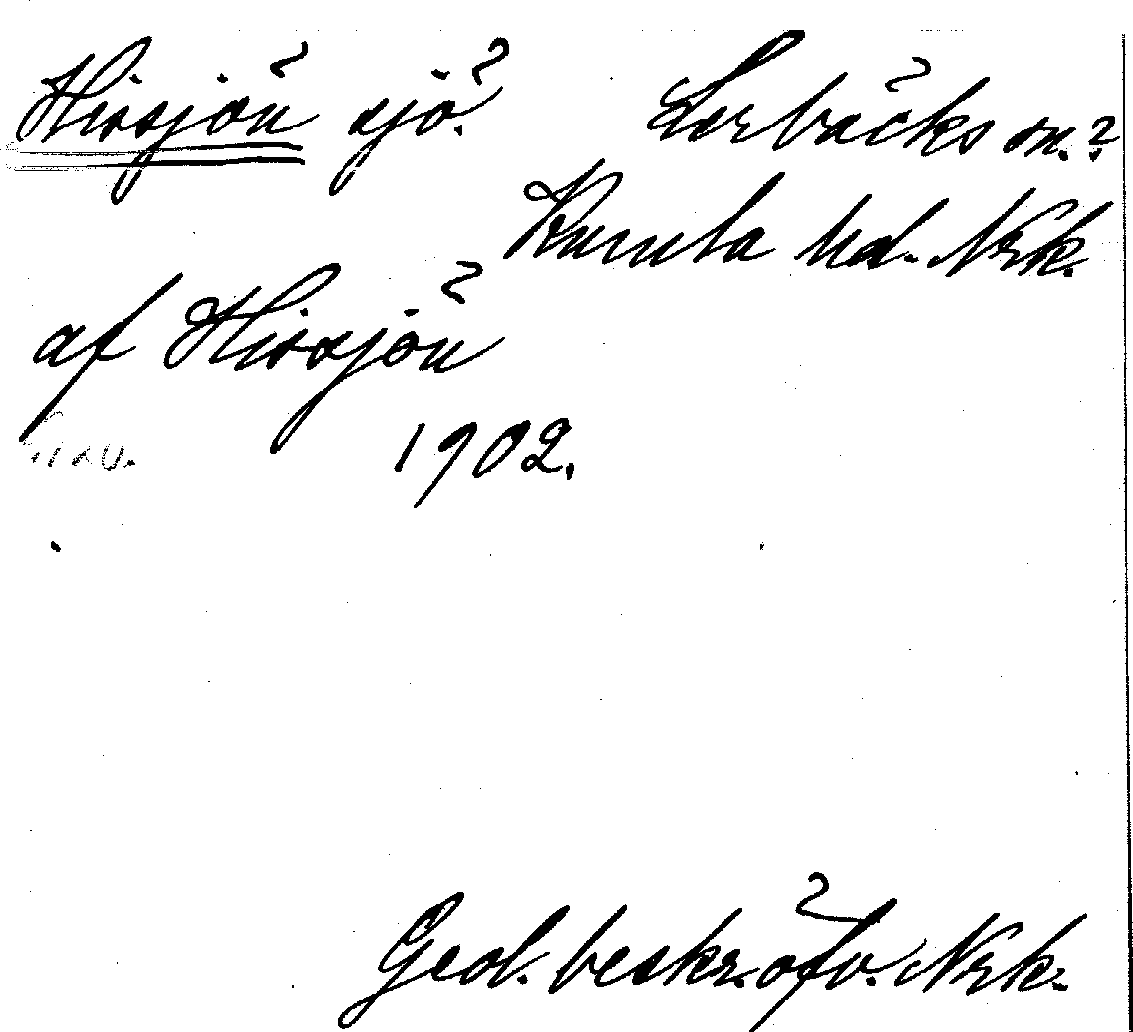 Hissjön sjö. Lerbäcks sn.?
Kumla hd. Nrk.
af Hissjön
1902.
Geol. beskr. öfv. Nrk.